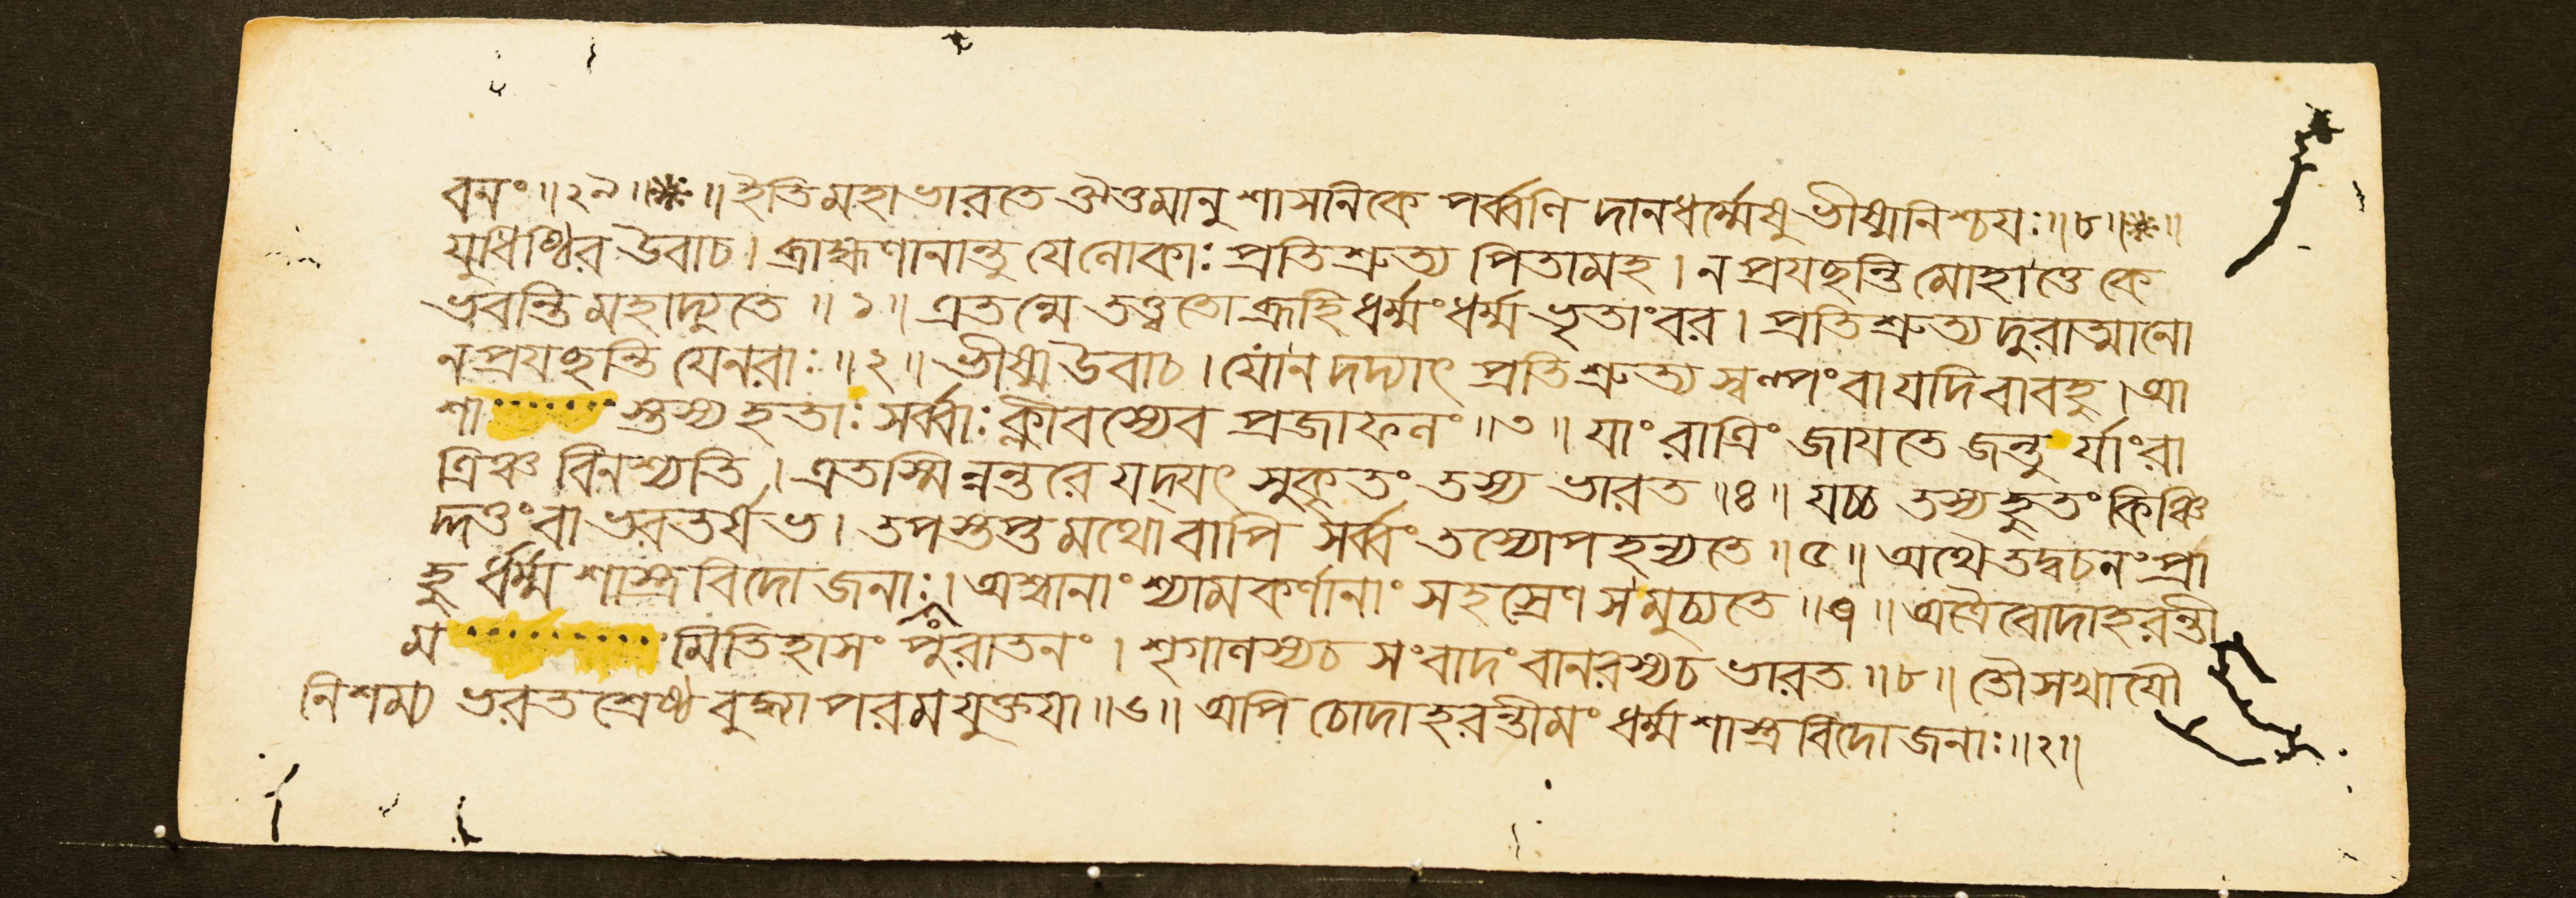 বনং॥২৯॥❋॥ইতিমহাভারতে ঔত্তমানুশাসনিকে পর্ব্বণি দানধর্ম্মেষু ভীষ্মনিশ্চযঃ॥৮॥❋॥
যুধিষ্ঠির উবাচ। ব্রাহ্মণানান্তু যেনোকাঃ প্রতিশ্রুত্য পিতামহ। ন প্রযছন্তি মোহাত্তে কে
ভবন্তি মহাদ্যুতে॥১॥ এতন্মে তত্ত্বতো ব্রূহি ধর্ম্মং ধর্ম্মভৃতাংবর। প্রতিশ্রুত্য দুরাত্মানো
ন প্রযছন্তি যেনরাঃ॥২॥ ভীষ্ম উবাচ। যোন দদ্যাৎ প্রতিশ্রুত্য স্বল্পংবা যদিবাবহু। আ
শা স্তস্য হতাঃ সর্ব্বাঃ ক্লীবস্যেব প্রজাফলং॥৩॥ যাং রাত্রিং জাযতে জন্তু র্যাংরা
ত্রিঞ্চ বিনশ্যতি। এতস্মিন্নন্তরে যদ্যৎ সুকৃতং তস্য ভারত॥৪॥ যচ্চ তস্য হুতং কিঞ্চি
দ্দত্তংবা ভরতর্ষভ। তপস্তপ্ত মথোবাপি সর্ব্বং তস্যোপহন্যতে॥৫॥ অথৈতদ্বচনং প্রা
হু র্ধর্ম্মশাস্ত্রবিদো জনাঃ। অশ্বানাং শ্যামকর্ণানাং সহস্রেণ সমুচ্যতে॥৭॥ অত্রৈবোদাহরন্তী
ম মিতিহাসং পুরাতনং। শৃগালস্যচ সংবাদং বানরস্যচ ভারত॥৮॥ তৌসখাযৌ
নিশম্য ভরতশ্রেষ্ঠ বুদ্ধ্যা পরমযুক্তযা॥৬॥ অপি চোদাহরন্তীমং ধর্ম্মশাস্ত্রবিদো জনাঃ॥২॥